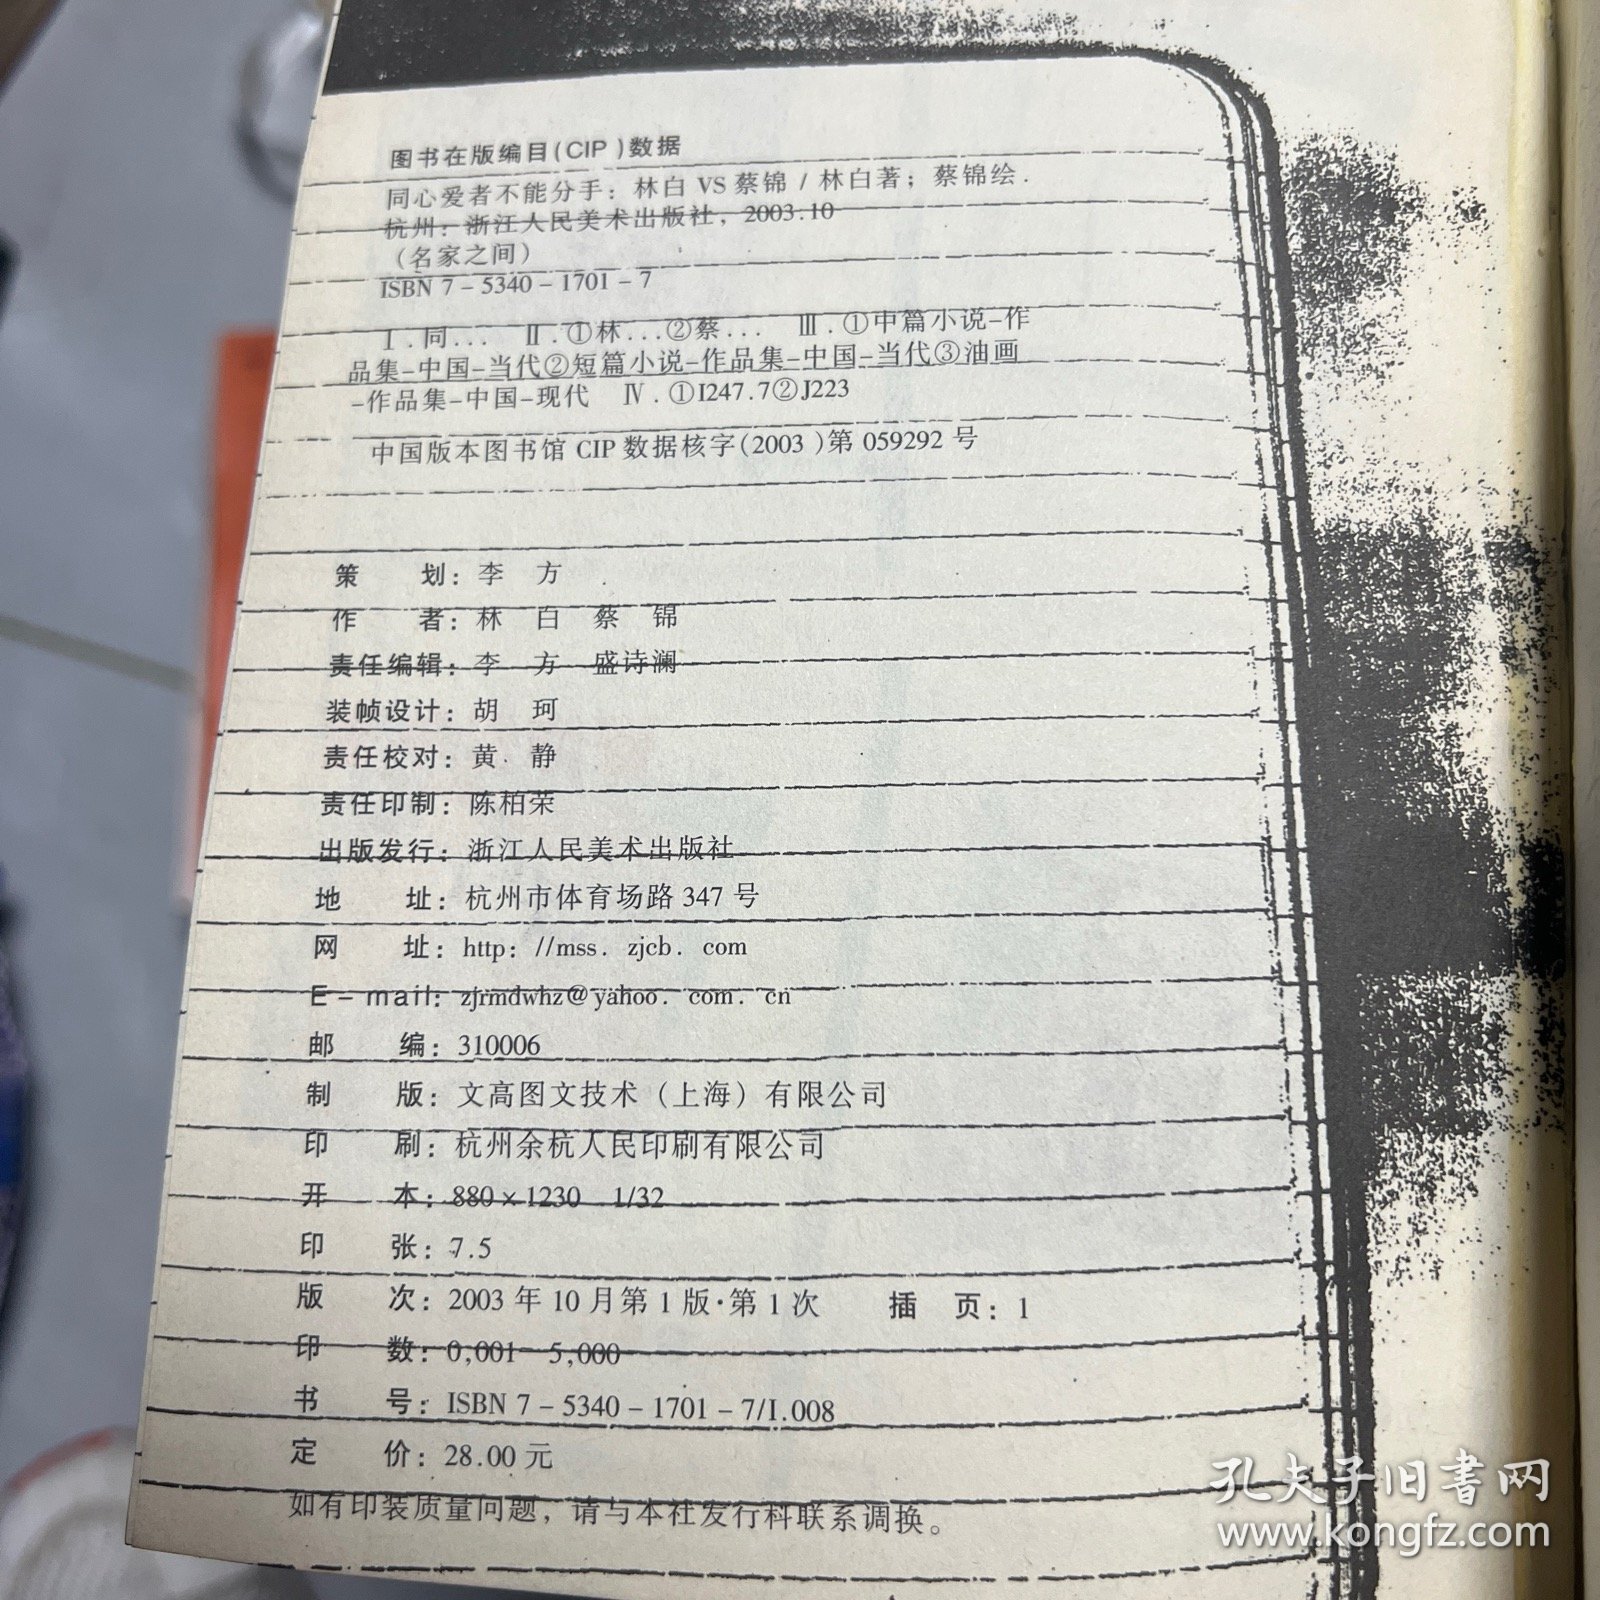 图书在版编目(CIP)数据
同心爱者不能分手：林白 VS 蔡锦 / 林白著；蔡锦绘.
杭州：浙江人民美术出版社，2003.10
（名家之间）
ISBN 7－5340－1701－7
Ⅰ.同… Ⅱ.①林…②蔡… Ⅲ.①中篇小说-作
品集-中国-当代②短篇小说-作品集-中国-当代③油画
-作品集-中国-现代 Ⅳ.①I247.7②J223
中国版本图书馆 CIP 数据核字(2003)第 059292 号
策 划：李 方
作 者：林 白 蔡 锦
责任编辑：李 方 盛诗澜
装帧设计：胡 珂
责任校对：黄 静
责任印制：陈柏荣
出版发行：浙江人民美术出版社
地 址：杭州市体育场路 347 号
网 址：http：//mss．zjcb．com
E－mail：zjrmdwhz@yahoo．com．cn
邮 编：310006
制 版：文高图文技术（上海）有限公司
印 刷：杭州余杭人民印刷有限公司
开 本：880×1230 1/32
印 张：7.5
版 次：2003 年 10 月第 1 版·第 1 次 插 页：1
印 数：0,001—5,000
书 号：ISBN 7－5340－1701－7/I.008
定 价：28.00 元
如有印装质量问题，请与本社发行科联系调换。
孔夫子旧书网
www.kongfz.com